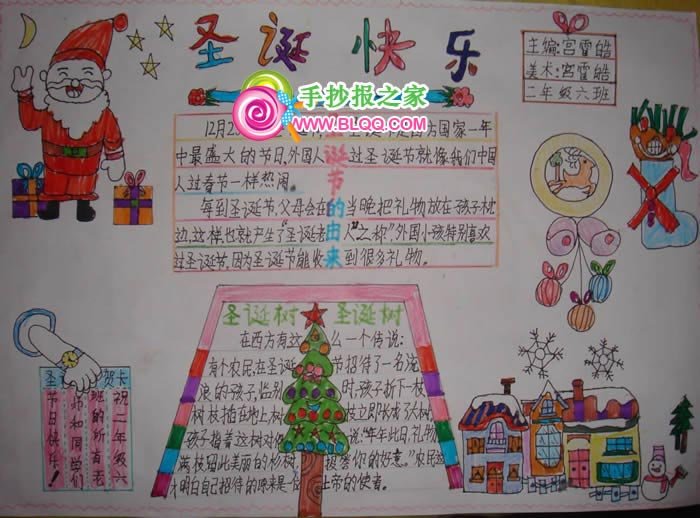 圣诞快乐
手抄报之家
WWW.BLQQ.COM
主编:宫雷皓
美术:宫雷皓
二年级六班
12月2
国家一年
中最盛大的节日,外国人 过圣诞节就像我们中国
人过春节一样热闹。
每到圣诞节,父母会在 当晚把礼物放在孩子枕
边,这样,也就产生了“圣诞老人”之称”外国小孩特别喜欢
过圣诞节,因为圣诞节能收 到很多礼物。
圣诞节的由来
圣诞树 圣诞树
在西方有这 么一个传说:
有个农民,在圣诞 节招待了一名流
浪的孩子,临别 时,孩子折下一根
树枝插在地上树 枝立即长成
孩子指着这树对他 说“年年此日,礼物
满枝留此美丽的杉树 报答你的好意。”农民这
才明白自己招待的原来是一位 上帝的使者。
圣 贺卡
祝二年级六
班的所有老
师和同学们
节日快乐!